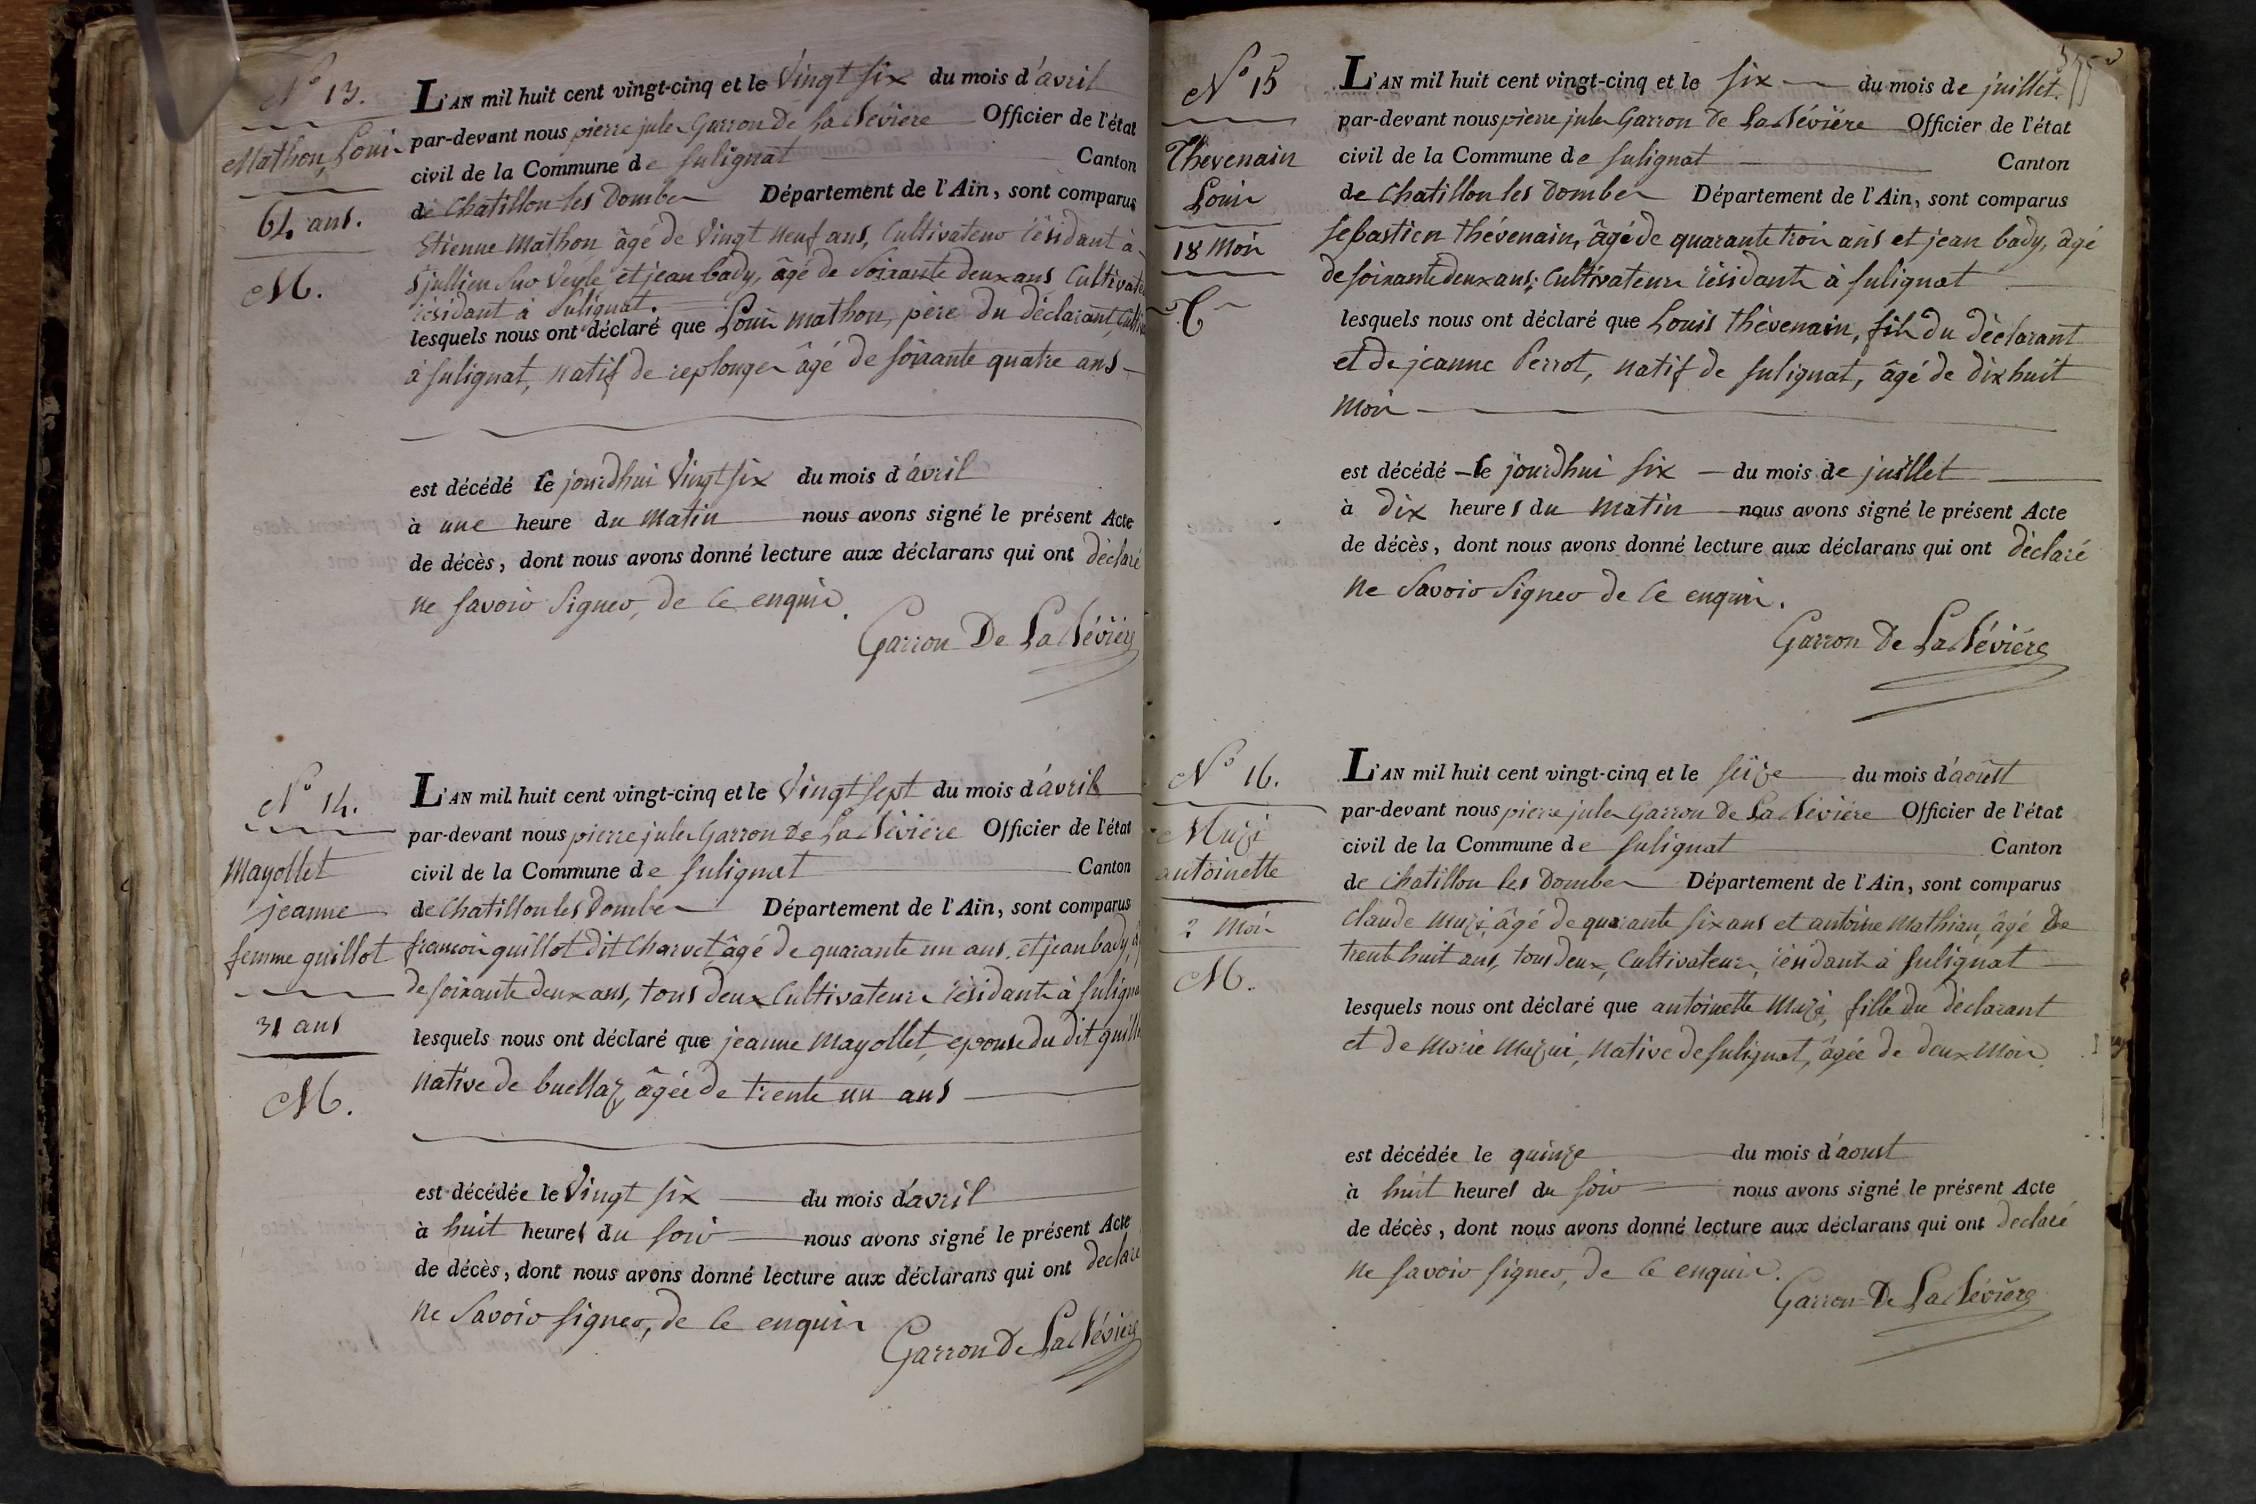 N° 13.
Mathon Louis
64 ans.
M.
L'AN mil huit cent vingt-cinq et le Vingt six du mois d'avril
par-devant nous pierre jules Garron De La Bévière Officier de l'état
civil de la Commune de Sulignat Canton
de Chatillon les Dombes Département de l'Ain, sont comparus
Etienne Mathon âgé de Vingt neuf ans, Cultivateur résidant à
St jullien Sur Veyle et jean bady, âgé de Soixante deux ans Cultivateur
résidant à Sulignat.
lesquels nous ont déclaré que Louis Mathon, père du déclarant,
à Sulignat, natif de replonges âgé de soixante quatre ans
est décédé le jourdhui Vingt six du mois d'avril
à une heure du Matin nous avons signé le présent Acte
de décès, dont nous avons donné lecture aux déclarans qui ont déclaré
ne savoir Signer, de ce enquis.
Garron De La Bévière
N° 14.
Mayollet
jeanne
femme quillot
31 ans
M.
L'AN mil huit cent vingt-cinq et le Vingt sept du mois d'avril
par-devant nous pierre jules Garron De La Bévière Officier de l'état
civil de la Commune de Sulignat Canton
de Chatillon les Dombes Département de l'Ain, sont comparus
francois quillot dit Charvet âgé de quarante un ans et jean bady,
de soixante deux ans, tous deux Cultivateurs résidants à Sulignat
lesquels nous ont déclaré que jeanne Mayollet, epouse du dit quillot
Native de buellaz âgée de trente un ans
est décédée le Vingt six du mois d'avril
à huit heures du soir nous avons signé le présent Acte
de décès, dont nous avons donné lecture aux déclarans qui ont declaré
ne Savoir signer, de ce enquis
Garron De La Bévière
N° 15
Thevenain
Louis
18 Mois
C
L'AN mil huit cent vingt-cinq et le six du mois de juillet.
par-devant nous pierre jules Garron de La Bévière Officier de l'état
civil de la Commune de Sulignat Canton
de Chatillon les Dombes Département de l'Ain, sont comparus
Sebastien thévenain, âgé de quarante trois ans et jean bady, âgé
de soixante deux ans, Cultivateurs résidants à Sulignat
lesquels nous ont déclaré que Louis thévenain, fils du déclarant
et de jeanne Perrot, natif de Sulignat, âgé de dix huit
Mois
est décédé le jourdhui six du mois de juillet
à Dix heures du Matin nous avons signé le présent Acte
de décès, dont nous avons donné lecture aux déclarans qui ont déclaré
ne Savoir Signer de ce enquis.
Garron De La Bévière
N° 16.
Muzi
antoinette
2 Mois
M.
L'AN mil huit cent vingt-cinq et le seize du mois d'aoust
par-devant nous pierre jules Garron de La Bévière Officier de l'état
civil de la Commune de Sulignat Canton
de Chatillon les Dombes Département de l'Ain, sont comparus
Claude Muzi, âgé de quarante six ans et antoine Mathian, âgé de
trente huit ans, tous deux, Cultivateurs, résidants à Sulignat
lesquels nous ont déclaré que antoinette Muzi, fille du déclarant
et de Marie Mazui, Native de Sulignat, âgée de deux Mois.
est décédée le quinze du mois d'aoust
à huit heures du soir nous avons signé le présent Acte
de décès, dont nous avons donné lecture aux déclarans qui ont declaré
ne savoir signer, de ce enquis.
Garron De La Bévière